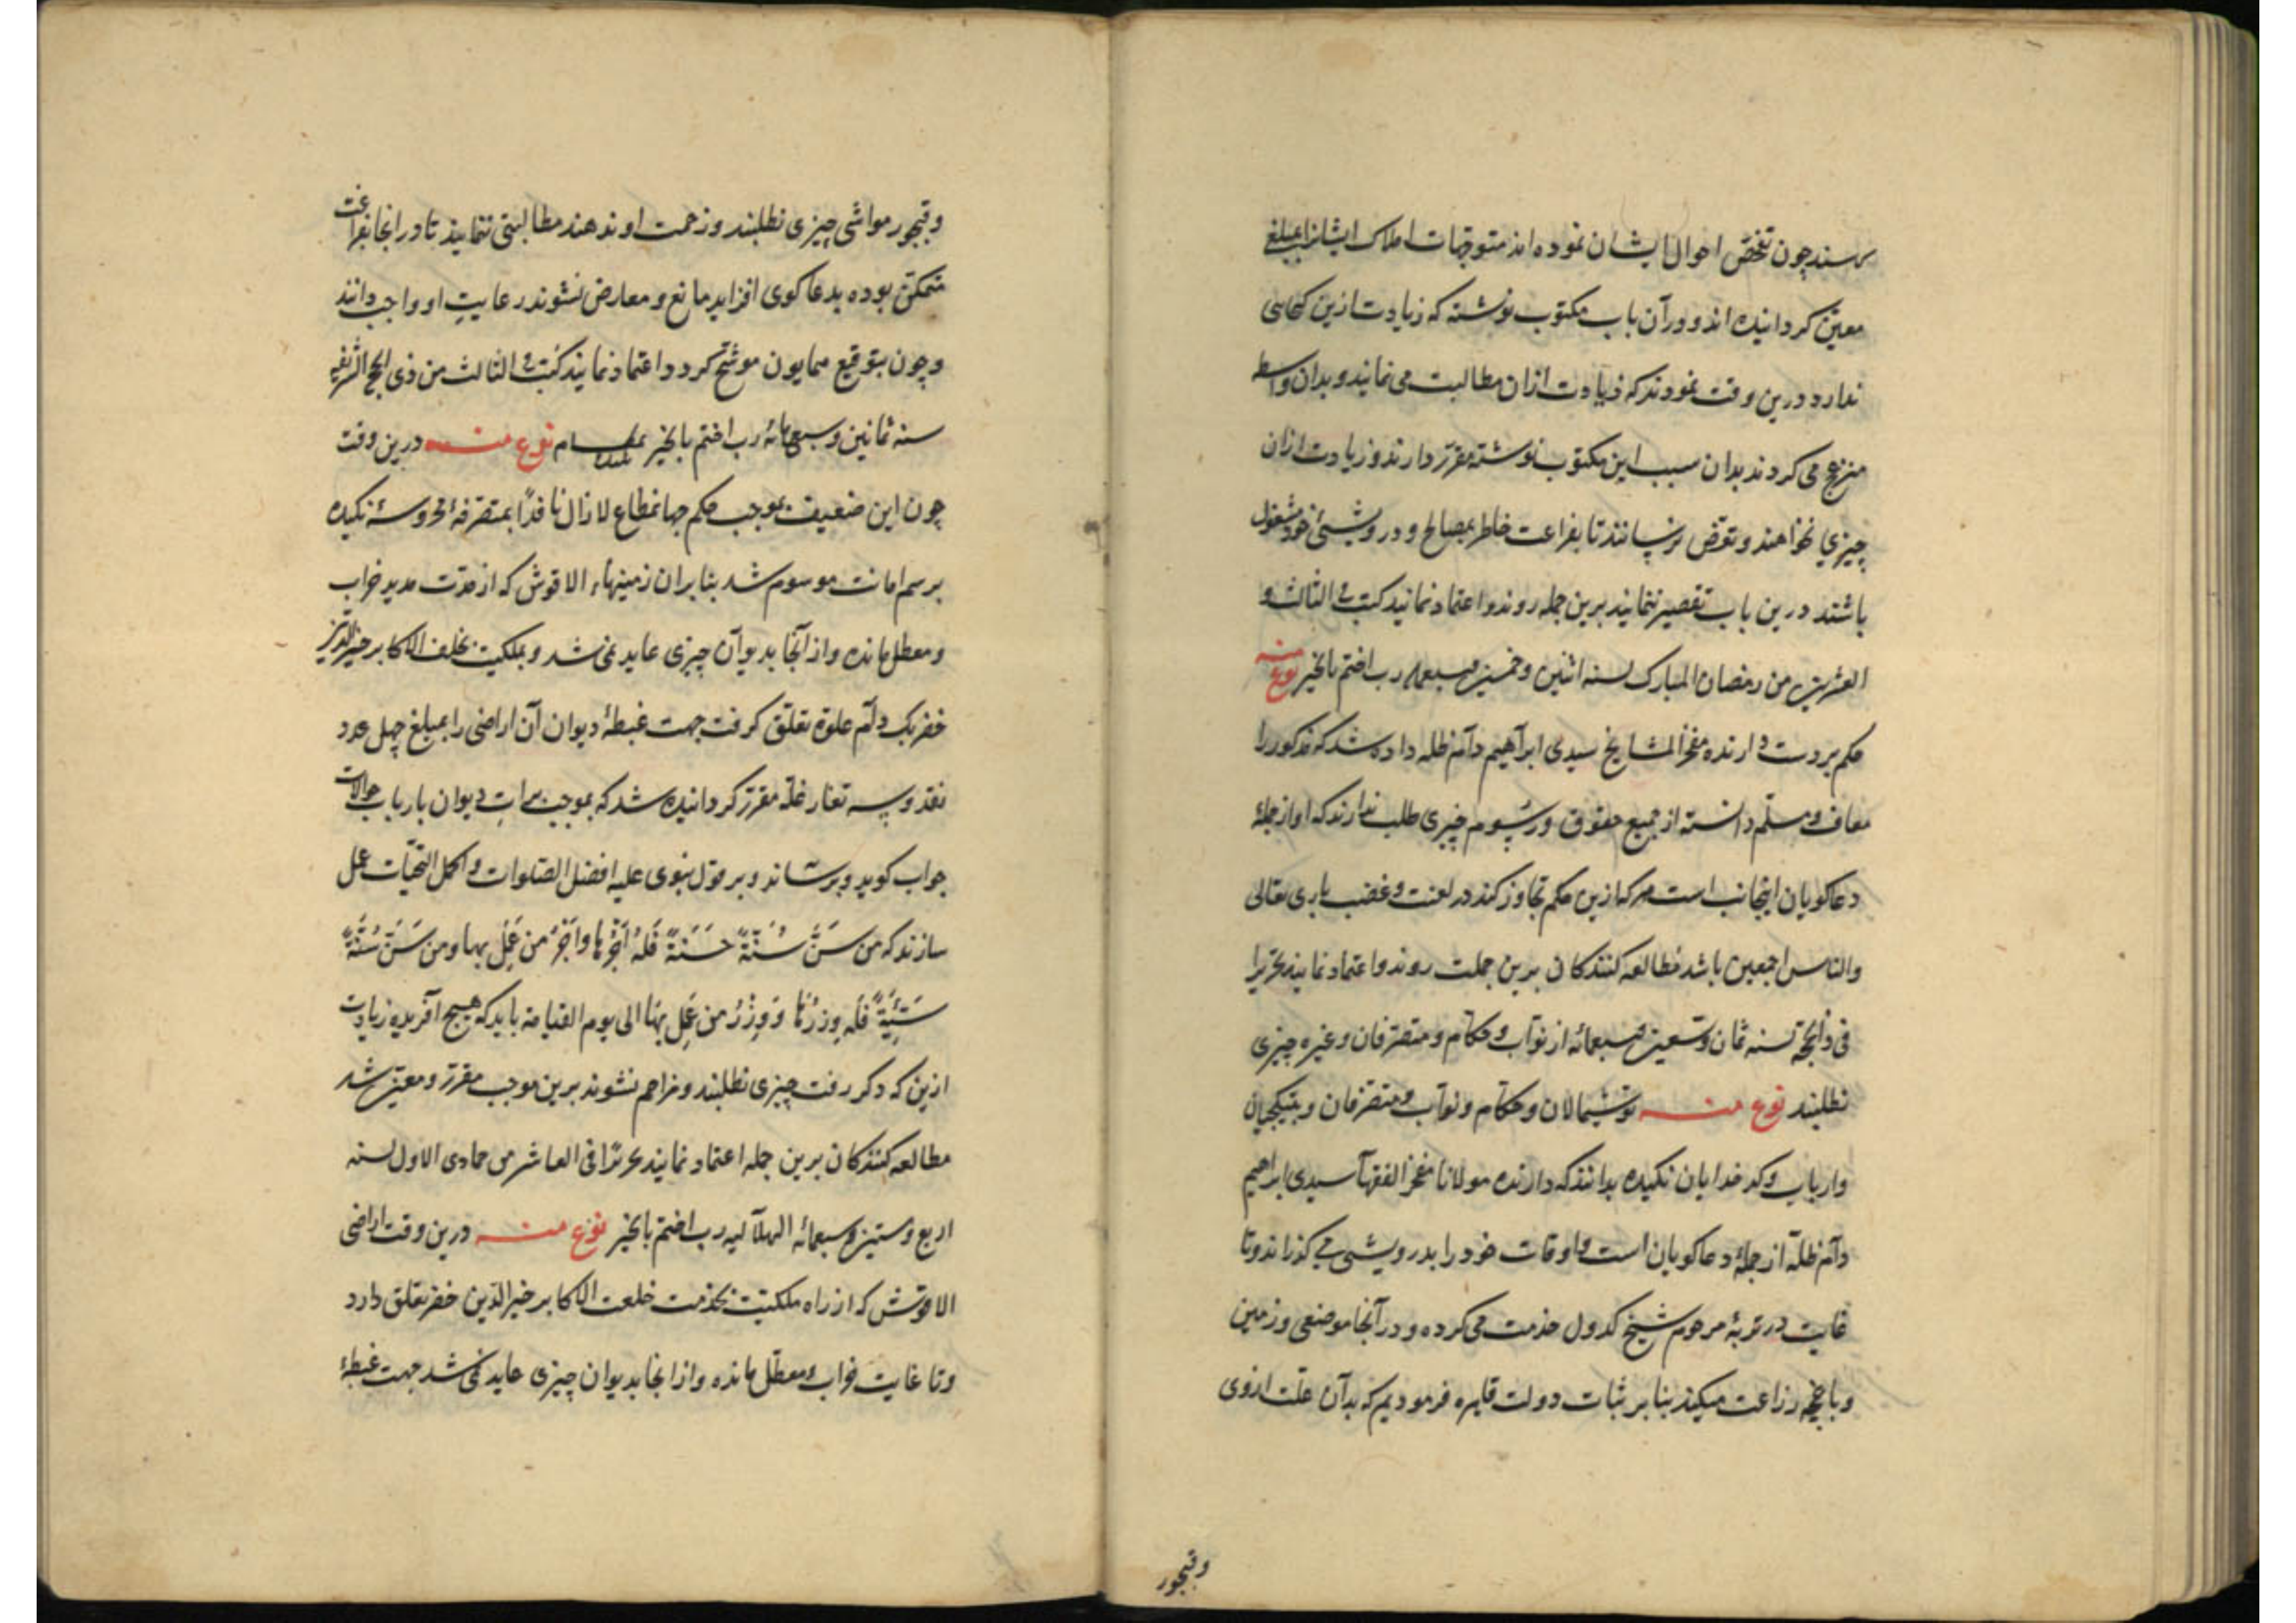 رسند چون تفحّص احوال ایشان نموده اند متوجّهات املاک ایشانرا بمبلغی
معیّن کردانیده اند و در آن باب مکتوب نوشته که زیادت ازین کسی
ندارد درین وقت نمودند که زیادت ازان مطالبت می نمایند و بدان واسطه
منزعج می کردند بدان سبب این مکتوب نوشته مقرّر دارند و زیادت ازان
چیزی نخواهند و تعرّض نرسانند تا بفراغت خاطر بمصالح و درویشئ خود مشغول
باشند درین باب تقصیر ننمایند برین جمله روند و اعتماد نمایند کتب فی الثالث و
العشرین من رمضان المبارک لسنه اثنین و خمسین و سبعمایه رب اختم بالخیر نوع منه
حکم بردست دارنده مفخر المشایخ سیدی ابراهیم دام ظله داده شد که مذکور را
معاف و مسلّم دانسته از جمیع حقوق و رسوم چیزی طلب ندارند که او از جملهٔ
دعاکویان اینجانب است هرکه ازین حکم تجاوز کند در لعنت و غضب باری تعالی
والناس اجمعین باشد مطالعه کنندکان برین جملت روند و اعتماد نمایند تحریرا
فی ذالحجّة لسنه ثمان و تسعین و سبعمائه از نوّاب و حکّام و متصرّفان و غیره چیزی
نطلبند نوع منه توشمالان و حکّام و نوّاب و متصرّفان و بتیکجیان
و ارباب و کدخدایان نکیده بدانند که دارنده مولانا مفخر الفقها سیدی ابراهیم
دام ظلّه از جملهٔ دعاکویان است و اوقات خود را بدرویشی می کذراند و تا
غایت در تربهٔ مرحوم شیخ کدول خدمت می کرده و در آنجا موضعی و زمین
و باغچه زراعت میکند بنا بر ثبات دولت قاهره فرمودیم که بدآن علّت ازوی
وقبجور
وقبجور مواشی چیزی نطلبند و زحمت او ندهند مطالبتی ننمایند تا در انجا بفراغت
متمکّن بوده بدعاکوی افزاید مانع و معارض نشوند رعایتِ او واجب دانند
و چون بتوقیع همایون موشّح کردد اعتماد نمایند کتب فی الثالث من ذی الحج الشریفه
سنه ثمانین و سبعمائه رب اختم بالخیر نوع منه درین وقت
چون این ضعیف بموجب حکم جهانمطاع لا زال نافذًا بمتصرّفهٔ محروسهٔ نکیده
برسم امانت موسوم شد بنا بران زمینهاء الاقوش که از مدّت مدید خراب
و معطل مانده و از آنجا بدیوان چیزی عاید نمی شد و بملکیت بخلف الاکابر خیر الدّین
خضر بک دام علوّه تعلّق کرفت جهت غبطهٔ دیوان آن اراضی را بمبلغ چهل عدد
نقد و سه تغار غلّه مقرّر کردانیده شد که بموجب براتِ دیوان بارباب حوالات
جواب کوید و برساند و بر قول نبوی علیه افضل الصّلوات و اکمل التحیّات عمل
سازند که من سَنَّ سُنَّةً حَسَنَةً فَلَهُ اَجْرُها وَاَجْرُ من عَمِل بها و من سَنَّ سُنَّةً
سَیِّئَةً فَلَه وِزرُها وَ وِزْرُ من عَمِل بهَا الی یوم القیامه باید که هیچ آفریده زیادت
ازین که ذکر رفت چیزی نطلبند و مزاحم نشوند برین موجب مقرّر و معیّن شد
مطالعه کنندکان برین جمله اعتماد نمایند تحریرًا فی العاشر من جمادی الاول لسنه
اربع و ستین و سبعمائه الهلآلیه رب اختم بالخیر نوع منه درین وقت اراضی
الاقوش که از راه ملکیّت بخدمت خلف الاکابر خیر الدّین خضر تعلق دارد
و تا غایت خواب و معطّل مانده و از انجا بدیوان چیزی عاید نمی شد جهت غبطهٔ